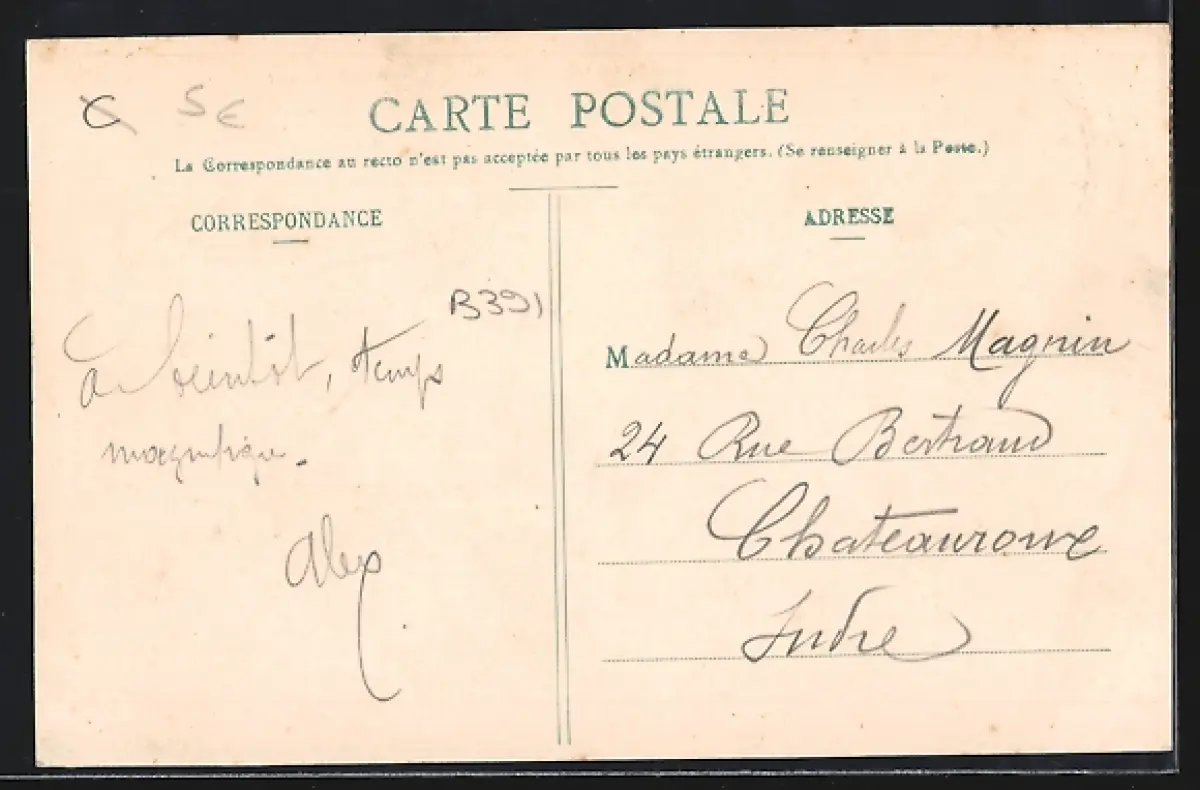 5 €
CARTE POSTALE
La Correspondance au recto n'est pas acceptée par tous les pays étrangers. (Se renseigner à la Poste.)
CORRESPONDANCE
B391
à bientôt, temps
magnifique.
Alex
ADRESSE
Madame Charles Magnin
24 Rue Bertrand
Chateauroux
Indre